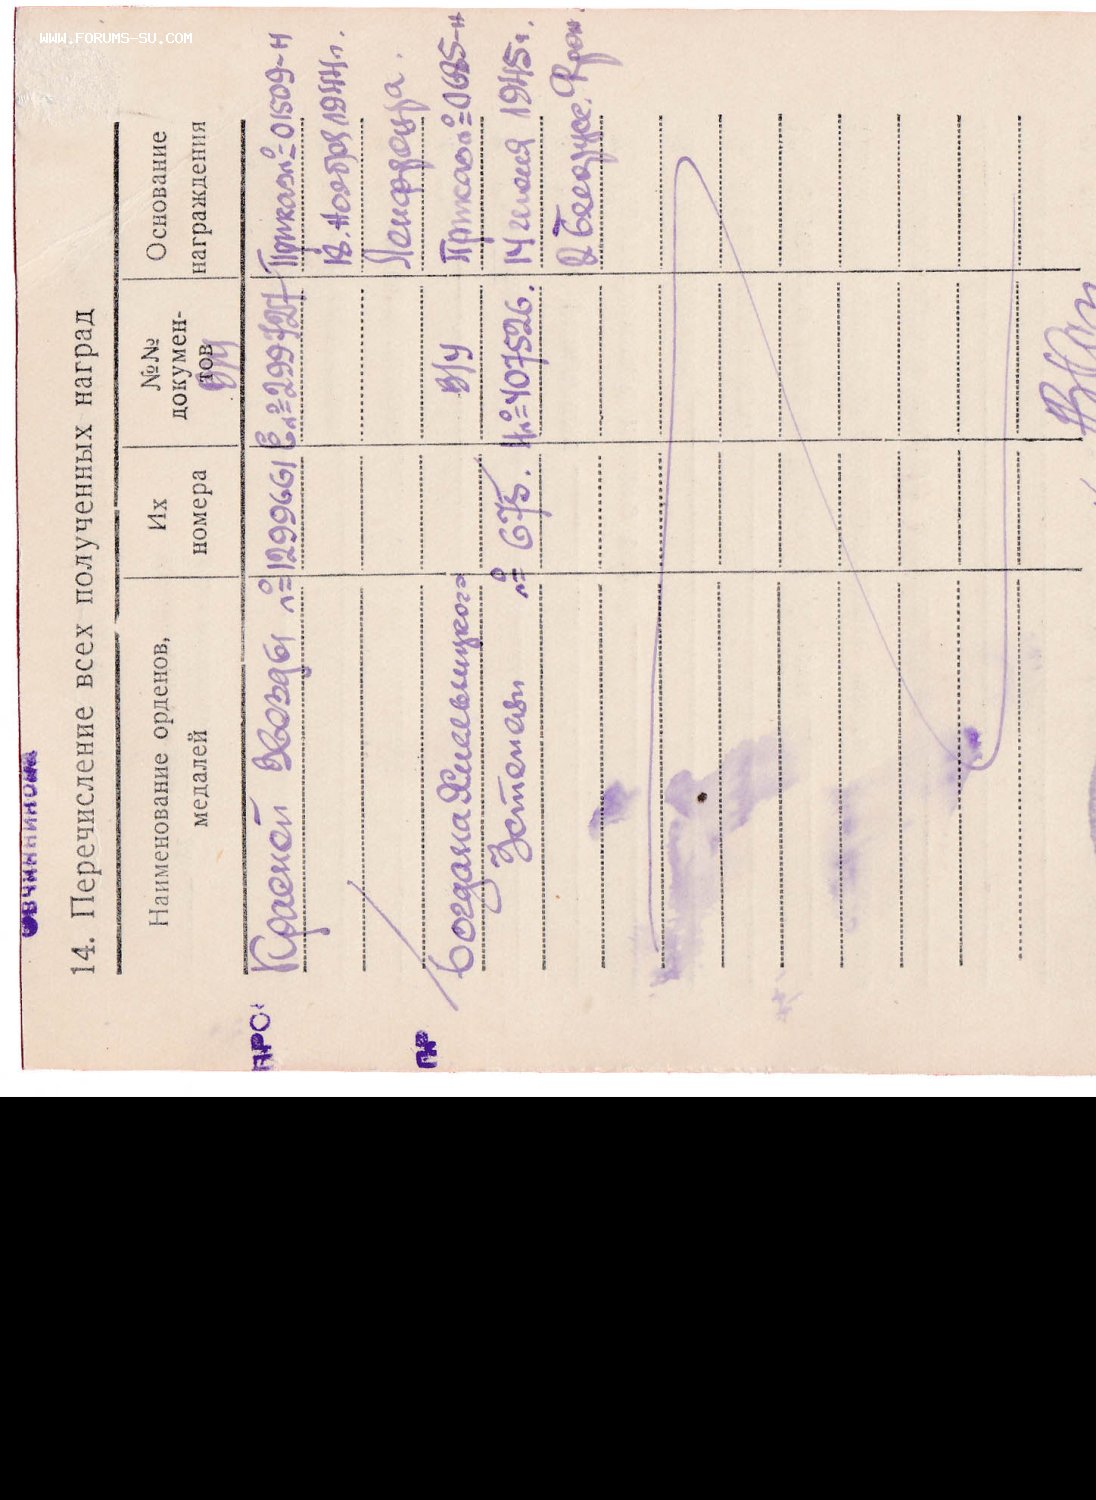 WWW.FORUMS-SU.COM
14. Перечисление всех полученных наград
Наименование орденов,
медалей
Их
номера
№№
докумен-
тов
В/У
Основание
награждения
ПРО
Красной Звезды №1299661
Приказ №01509-Н
18. Ноября 1944г.
ПР
Богдана Хмельницкого
В/У
Приказ №0685-Н
3 степени
№ 675.
№407526.
14 июня 1945г.
2 Белорусс. Фрон